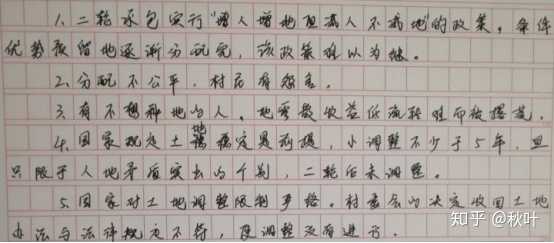 1. 二轮承包实行"增人增地但减人不减地"的政策。条件
优势预留地逐渐分配完，该政策难以为继。
2. 分配不公平，村民有怨言。
3. 有不想种地的人，地零散收益低流转难而被撂荒。
4. 国家规定土地稳定是前提，小调整不少于5年，且
只限于人地矛盾突出的个别，二轮后未调整。
5. 国家对土地调整限制严格。村委会的决定收回土地
办法与法律规定不符，度调整没有进行。
知乎 @秋叶